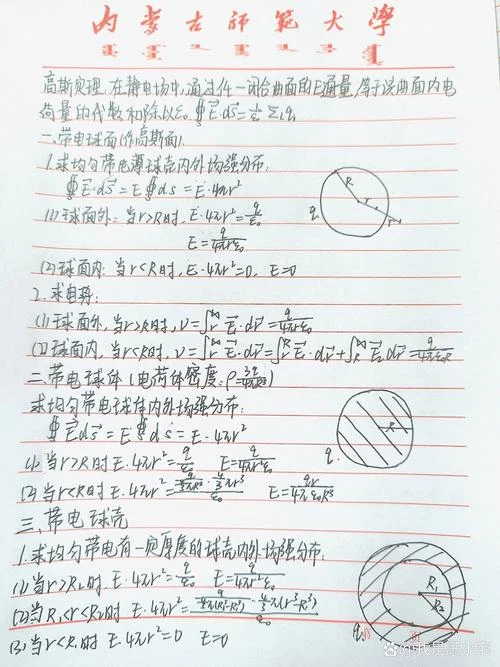 内蒙古师范大学
高斯定理：在静电场中，通过任一闭合曲面的E通量，等于该曲面内电
荷量的代数和除以ε₀ ∯E⃗·ds⃗=1/ε₀ Σᵢqᵢ
一、带电球面(作高斯面)
1.求均匀带电薄球壳内外场强分布：
∯E⃗·ds⃗=E∯ds=E·4πr²
(1)球面外：当r>R时，E·4πr²=q/ε₀
E=q/4πr²ε₀
(2)球面内：当r<R时，E·4πr²=0，E=0
R
r
q
2.求电势：
(1)球面外，当r>R时，V=∫ᵣ^∞E⃗·dr⃗=q/4πrε₀
(2)球面内，当r<R时，V=∫ᵣ^∞E⃗·dr⃗=∫ᵣ^R E⃗₁·dr⃗+∫_R^∞E⃗₂dr⃗=q/4πε₀R
二、带电球体(电荷体密度：ρ=3q/4πR³)
求均匀带电球体内外场强分布：
∯E⃗ds⃗=E∯ds=E·4πr²
(1)当r>R时E·4πr²=q/ε₀ E=q/4πr²ε₀
(2)当r<R时E·4πr²=q/(4/3πR³)·4/3πr³/ε₀ E=qr/4πε₀R³
R
q
三、带电球壳
1.求均匀带电有一定厚度的球壳内外场强分布：
(1)当r>R₂时E·4πr²=q/ε₀ E=q/4πr²ε₀
(2)当R₁<r<R₂时 E·4πr²=q/(4/3π(R₂³-R₁³))·4/3π(r³-R₁³)/ε₀
(3)当r<R₁时E·4πr²=0 E=0
R₁
R₂
q